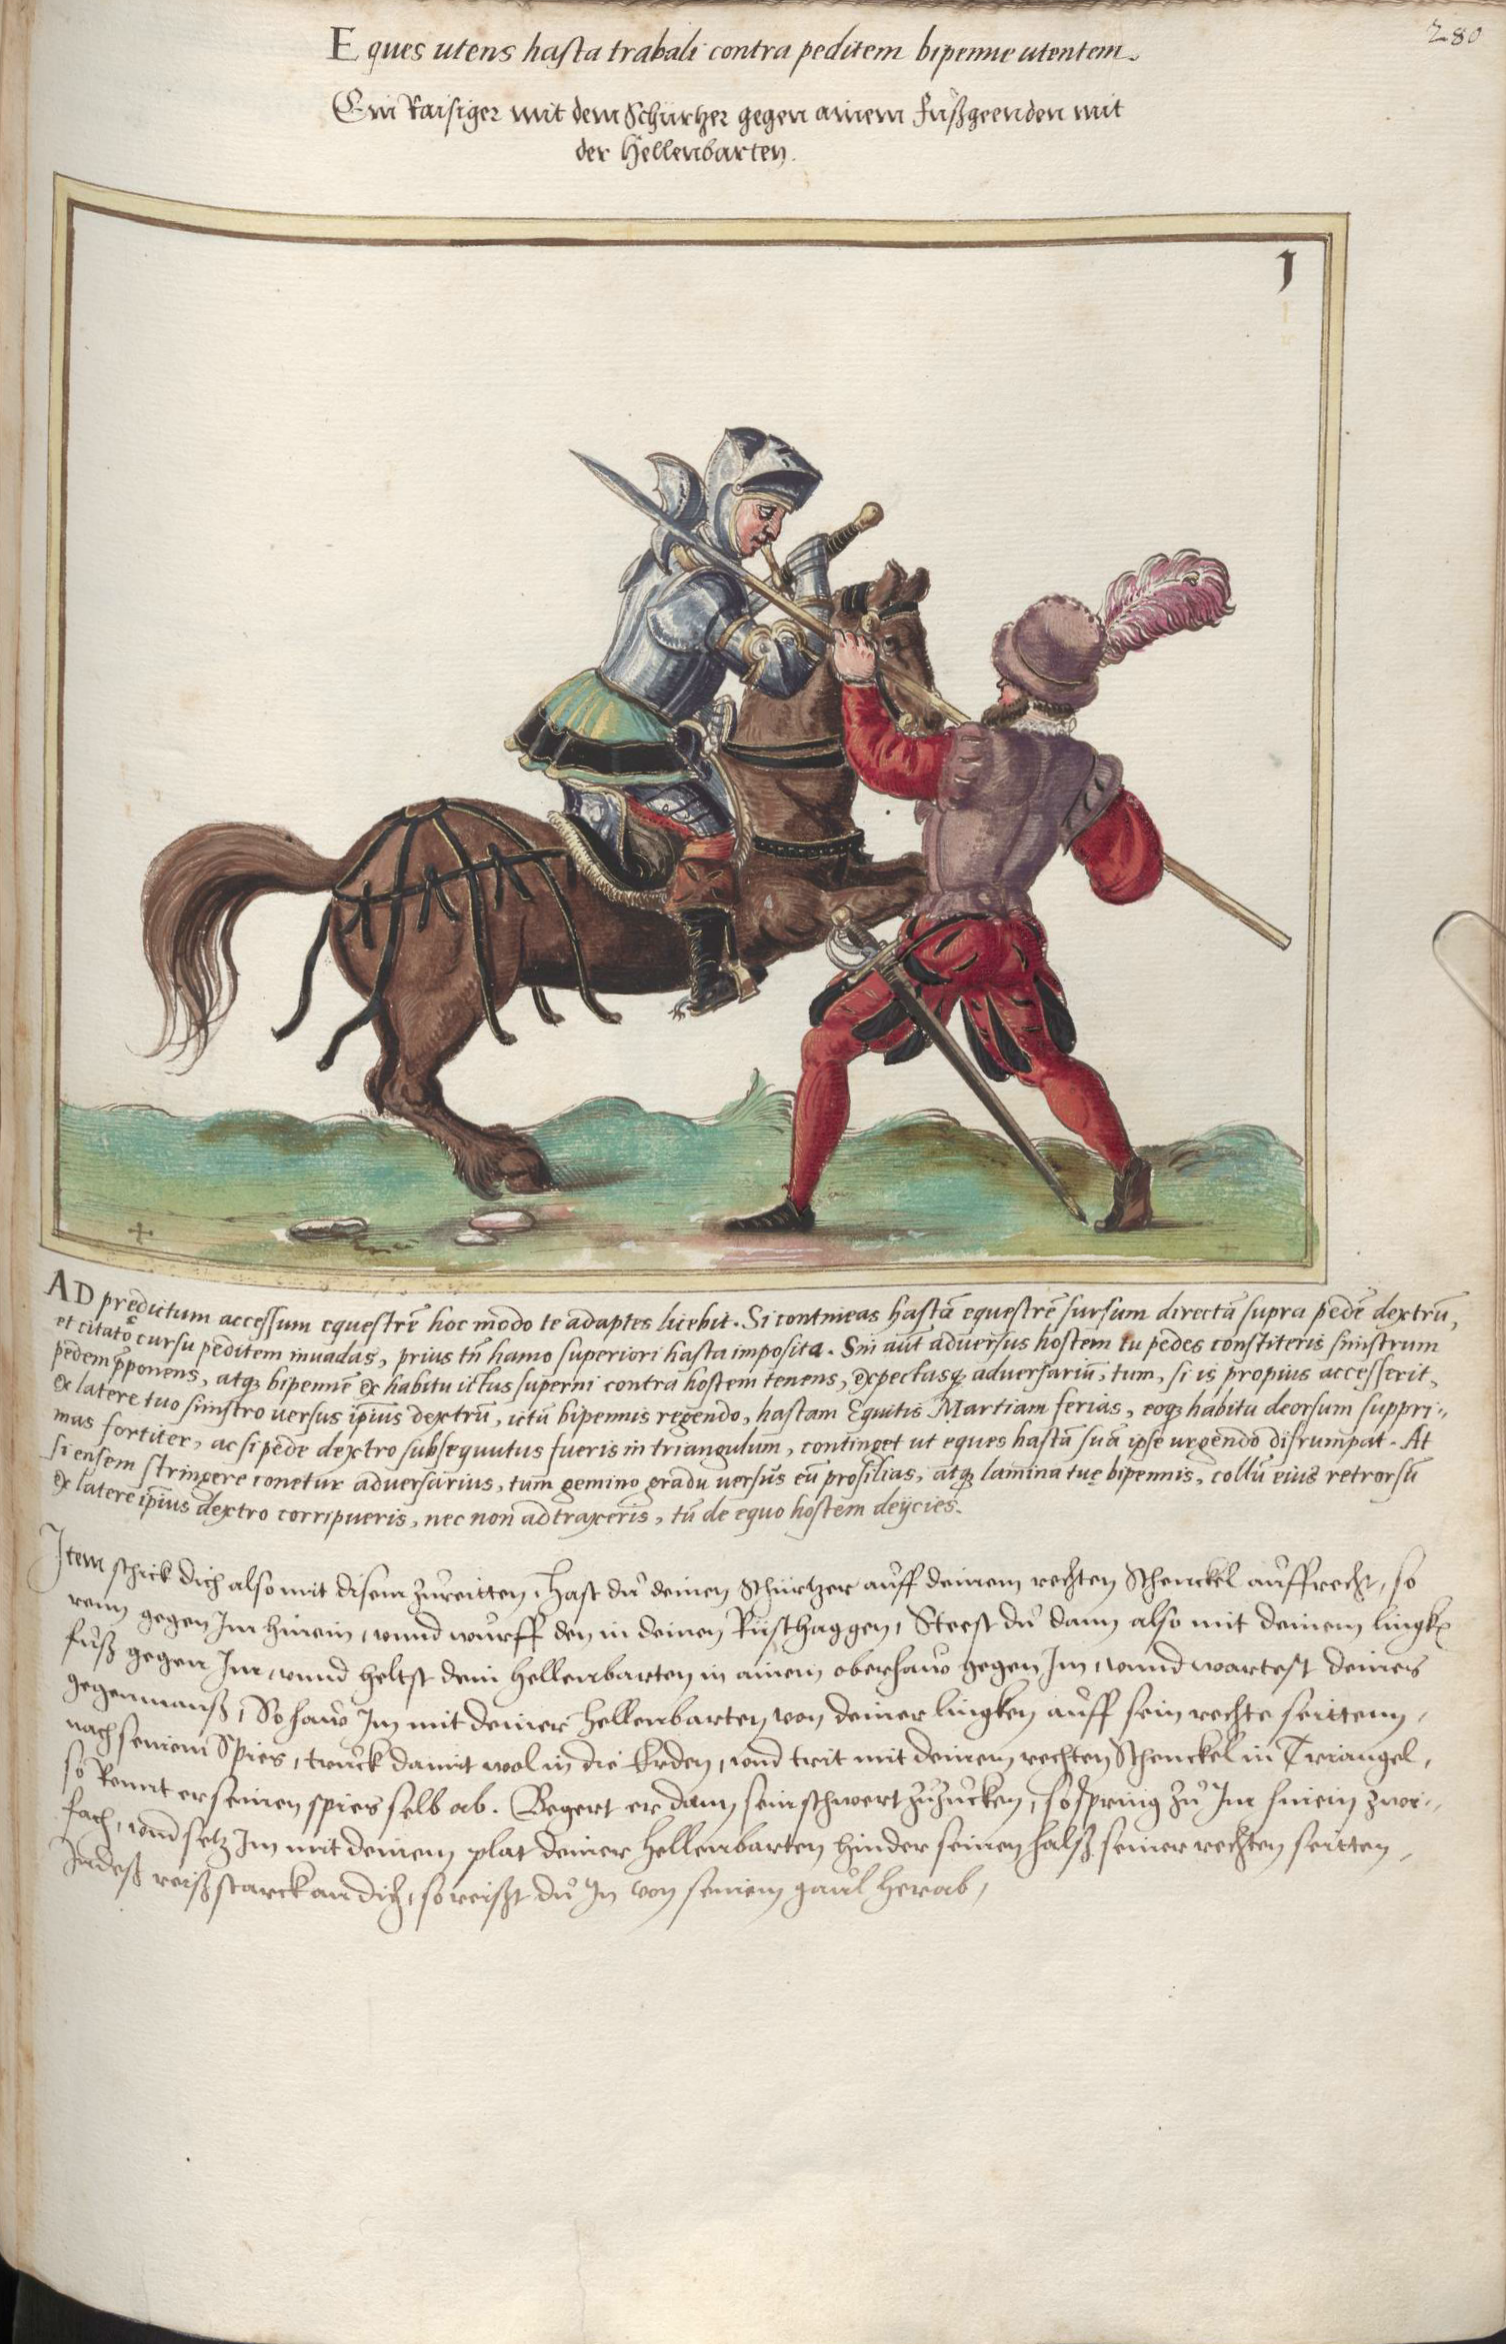 280
Eques utens hasta trabali contra peditem bipenne utentem.
Ein Raisiger mit dem Schürtzer gegen ainem fuͦßgeenden mit
der Hellenbarten.
1
AD predictum accessum equestrē hoc modo te adaptes licebit. Si contineas hastā equestrē sursum directā supra pedē dextrū,
et citato cursu peditem inuadas, prius tn̄ hamo superiori hasta imposita. Sin aut adversus hostem tu pedes constiteris sinistrum
pedem p̄ponens, atq; bipennē ex habitu ictus superni contra hostem tenens, expectasq; adversariū, tum, si is propius accesserit,
ex latere tuo sinistro versus ipsius dextrū, ictū bipennis regendo, hastam Equitis Martiam ferias, eoq; habitu deorsum suppri=
mas fortiter, ac si pede dextro subsequutus fueris in triangulum, continget ut eques hastā suā ipse urgendo disrumpat. At
si ensem stringere conetur adversarius, tum gemino gradu versus eū prosilias, atq; lamina tuę bipennis, collū eius retrorsū
ex latere ipsius dextro corripueris, nec non adtraxeris, tū de equo hostem deijcies.
Item schick dich also mit disem zuͦreitten, Hast duͦ deinen Schürtzer auff deinem rechten Schenckel auffrecht, so
renn gegen Im hinein, vnnd wurff den in deinen Rüsthaggen, Steest duͦ dann also mit deinem lingkn̄
fuͦß gegen Im, vnnd heltst dein Hellenbarten in ainem oberhaw gegen Im, vnnd wartest deines
gegenmanß, So haw Im mit deiner Hellenbarten, von deiner lingken auff sein rechte seittenn,
nach seinem Spies, truck damit wol in die Erden, vnd trit mit deinem rechten Schenckel in Triangel,
so rennt er seinen spies selb ab. Begert er dann sein schwert zuͦzucken, so spring zuͦ Im hinein zwi=
fach, vnnd setz Im mit deinem plat deiner Hellenbarten hinder seinen halß seiner rechten seitten,
Indeß reiß starck an dich, so reißt duͦ In von seinem gaul herab,